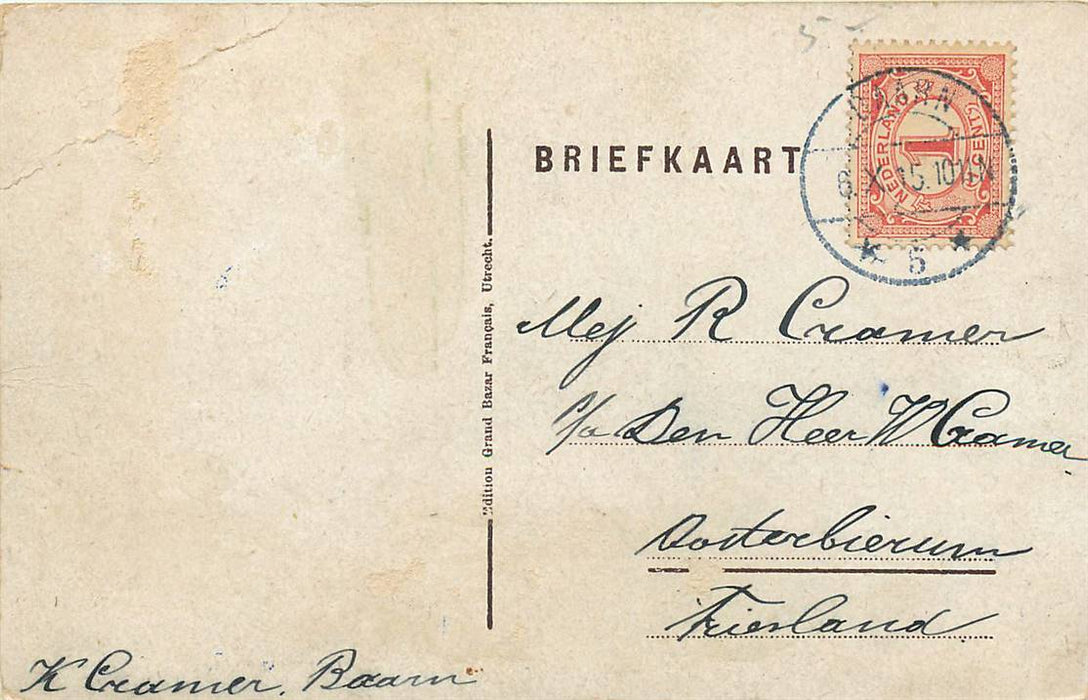 BRIEFKAART
NEDERLAND
1 CENT
BAARN
5
Mej R Cramer
c/o Den Heer W Cramer
Oosterbierum
Friesland
Edition Grand Bazar Français, Utrecht.
K Cramer. Baarn